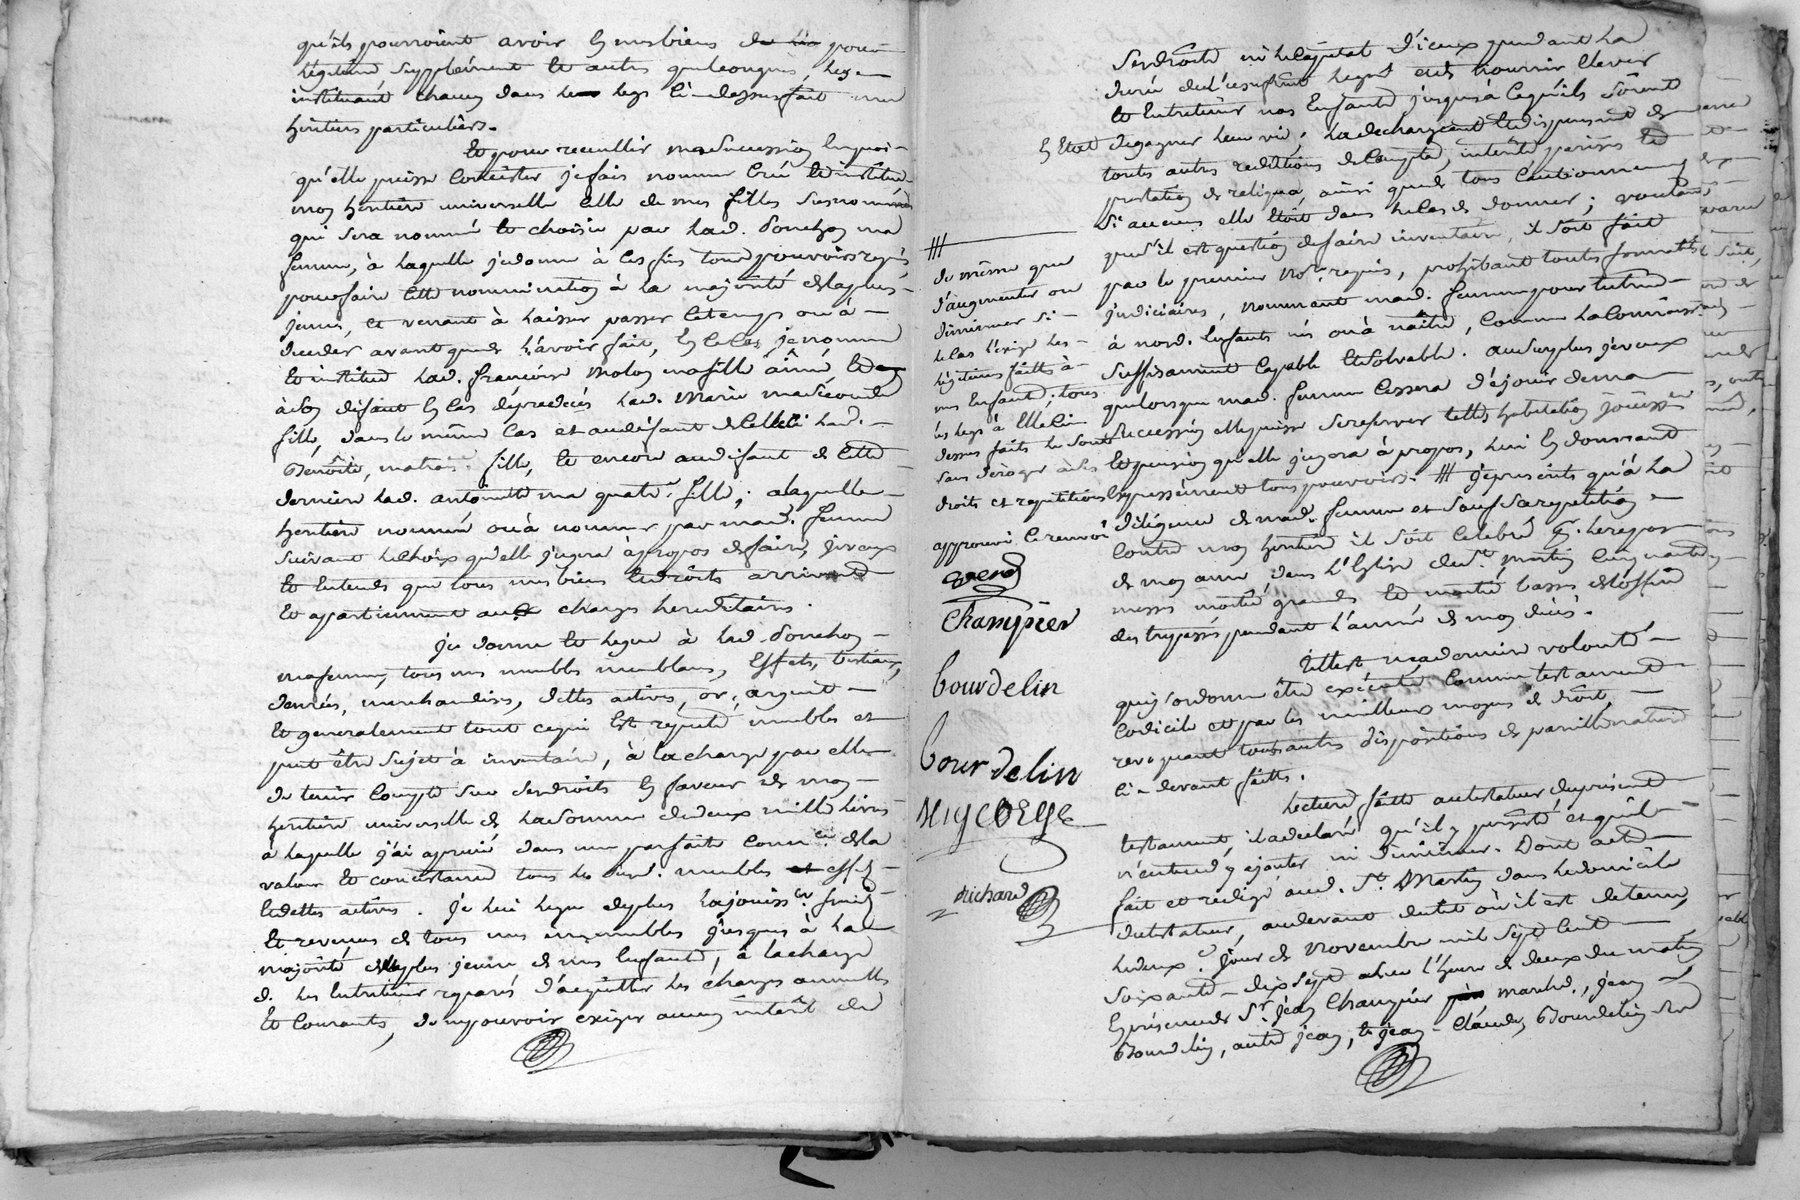 qu'ils pourroient avoir en mes biens pour
légitime supplément et autres quelconques, les
instituant chacun dans le legs ci-dessus fait mes
héritiers particuliers.
Et pour recueillir ma succession en quoi
qu'elle puisse consister je fais nomme crée et institue
mon héritière universelle celle de mes filles susnommées
qui sera nommé et choisie par lad. Donchon ma
femme, à laquelle je donne à ces fins tous pouvoirs requis
pour faire cette nomination à la majorité de la plus
jeune, et venant à laisser passer le temps ou à
décéder avant que de l'avoir fait, en ce cas je nomme
et institue lad. françoise molon ma fille aînée, et
à son défaut en cas de prédécès lad. Marie ma seconde
fille, dans le même cas et au défaut de celle ci lad.
Benoîte, ma trois.e fille, et encore au défaut de cette
dernière lad. antoinette ma quatr.e fille; a laquelle
héritière nommée ou à nommer par mad. femme
suivant le choix qu'elle jugera à propos de faire, je veux
et entends que tous mes biens et droits arrivent
et apartiennent aux charges hereditaires.
Je donne et legue à lad. Donchon
ma femme, tous mes meubles meublans, effets, bestiaux,
denrées, marchandises, dettes actives, or, argent
et generalement tout ce qui est reputé meubles et
peut être sujet à inventaire, à la charge par elle
de tenir compte sur ses droits en faveur de mon
héritière universelle de la somme de deux mille livres
à laquelle j'ai aprécié dans une parfaite conn.ce de la
valeur et consistance tous les susd. meubles effets
et dettes actives. Je lui legue de plus la jouiss.ce fruits
et revenus de tous mes immeubles jusques à la
majorité de la plus jeune de mes enfants, à la charge
d. les entretenir réparés d'acquitter les charges annuelles
et courants, de ne pouvoir exiger aucun intérêt de
ses droits ni le capital d'iceux pendant la
durée dud. usufruit legué et de nourrir elever
et entretenir nos enfants jusqu'à ce qu'ils soient
en etat de gagner leur vie, la dechargeant et dispensant de
touts autres redditions de compte, intérêts
prestation de reliqua, ainsi que de tous cautionnements
si aucuns elle étoit dans le cas de donner; voulant
que s'il est question de faire inventaire, il soit fait
par le premier not.re requis, prohibant toutes formalités
judiciaires, nommant mad. femme pour tutrice
à nosd. enfants nés ou à naître, comme la connoissant
suffisamment capable et solvable. au surplus je veux
que lorsque mad. femme cessera de jouir de ma
succession elle puisse se reserver telle habitation jouissance
et pension qu'elle jugera à propos, lui en donnant
expressément tous pouvoirs. # je prescrits qu'à la
diligence de mad. femme et sauf sa repetition
contre mon héritière il soit célébré pr. le repos
de mon ame dans l'Eglise dud. St. Martin cinquante
messes moitié grandes et moitié basses de l'office
des trepassés pendant l'année de mon décès.
Telle est ma derniere volonté
que j'ordonne être exécutée comme testament
codicile et par les meilleurs moyens de droit,
revoquant toutes autres dispositions de pareille nature
ci-devant faites.
Lecture faite au testateur du présent
testament, il a declaré qu'il y persiste et qu'il
n'entend y ajouter ni diminuer. Dont acte
fait et rédigé aud. St. Martin dans le domicile
du testateur, au devant du lit où il est detenu,
le deux.e jour de novembre mil sept cent
soixante-dix sept à l'heure de deux du matin
en présence de Sr. Jean Champier march.d, Jean
Bourdelin, autre Jean, et Jean-Claude Bourdelin
#
de même que
d'augmenter ou
diminuer si
le cas l'exige les
légitimes faittes à
mes enfants; tous
les legs à elle ci
dessus faits le sont
sans déroger à ses
droits et repetitions
approuvé le renvoi
Champier
bourdelin
bourdelin
Richard